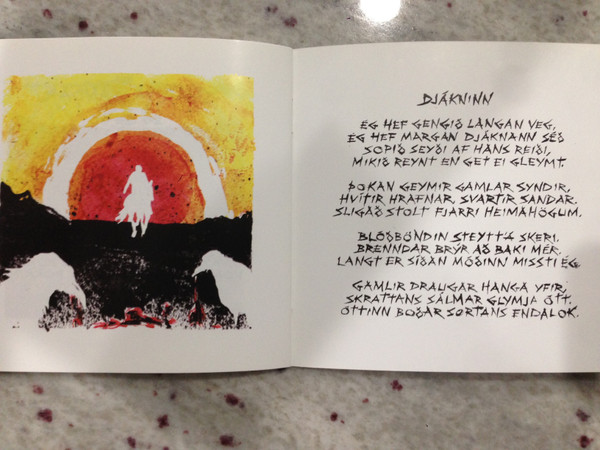 DJÁKNINN
ÉG HEF GENGIÐ LANGAN VEG,
ÉG HEF MARGAN DJÁKNANN SÉÐ
SOPIÐ SEYÐI AF HANS REIÐI,
MIKIÐ REYNT EN GET EI GLEYMT.
ÞOKAN GEYMIR GAMLAR SYNDIR,
HVÍTIR HRAFNAR, SVARTIR SANDAR.
SLIGAÐ STOLT FJARRI HEIMAHÖGUM.
BLÓÐBÖNDIN STEYTT Á SKERI.
BRENNDAR BRÝR AÐ BAKI MÉR.
LANGT ER SÍÐAN MÓÐINN MISSTI ÉG.
GAMLIR DRAUGAR HANGA YFIR,
SKRATTANS SÁLMAR GLYMJA ÓTT.
ÓTTINN BOÐAR SORTANS ENDALOK.